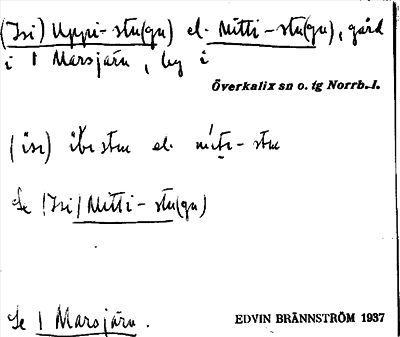 (Isi) Uppi-stu(gu) el. Mitti-stu(gu), gård
i 1 Marsjärv, by i
Överkalix sn o. tg Norrb.l.
(isi) el. -stu
Se (Isi) Mitti-stu(gu)
Se 1 Marsjärv.
EDVIN BRÄNNSTRÖM 1937